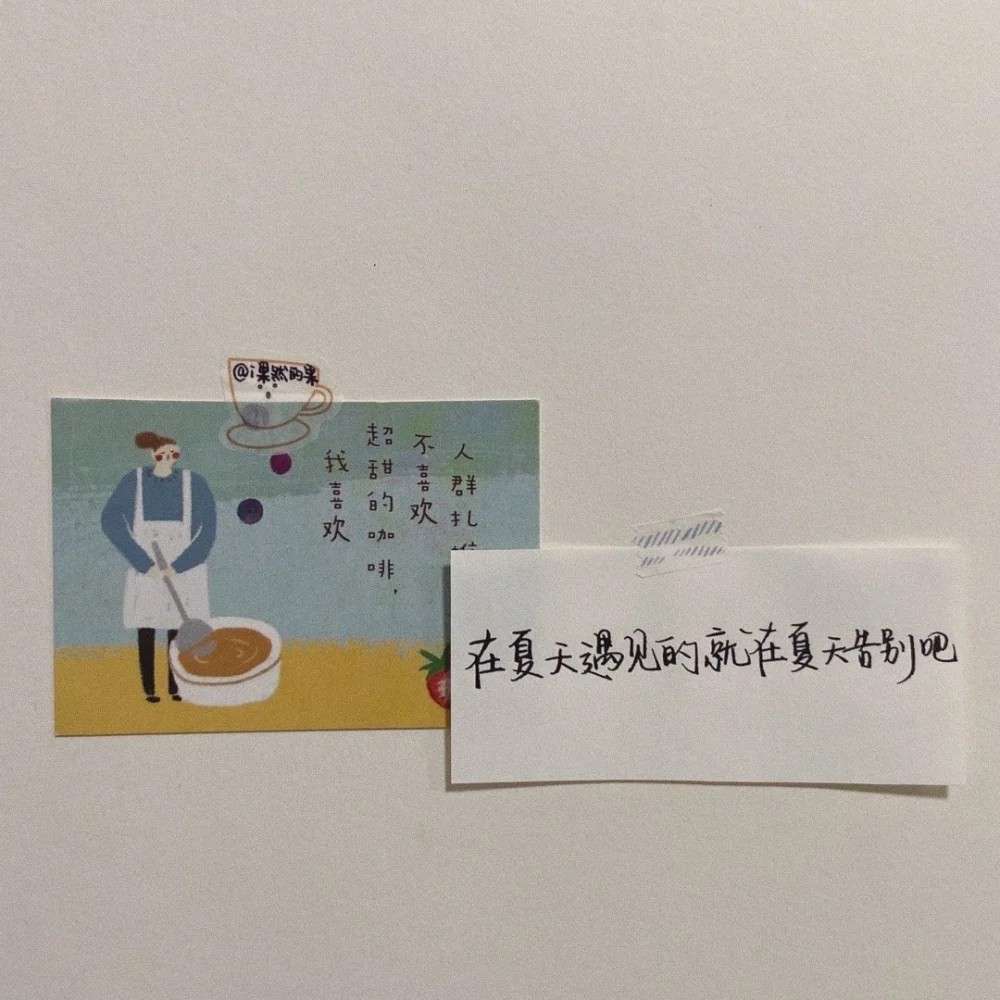 @i果然的果
我喜欢
超甜的咖啡，
不喜欢
人群扎
在夏天遇见的就在夏天告别吧